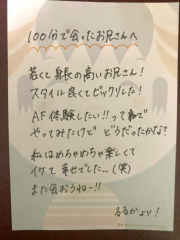 100分で会ったお兄さんへ
若くて身長の高いお兄さん！
スタイル良くてビックリした！
AF体験したい！！って事で
やってみたけど どうだったかな？
私はめちゃめちゃ楽しくて
イケて幸せでした…(笑)
また会おうねー!!
るるかより！